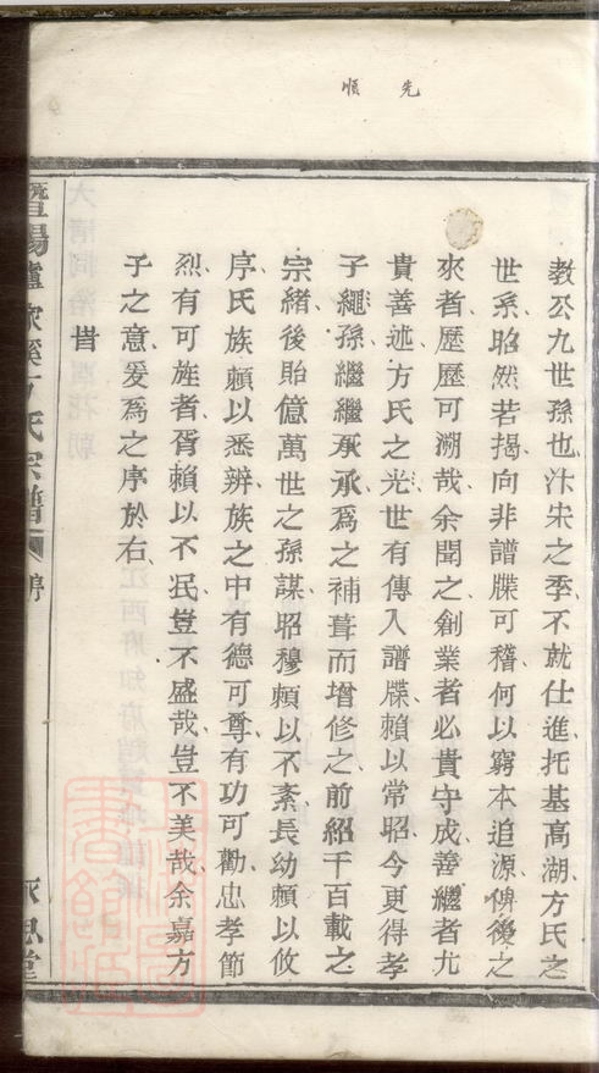 先順
教公九世孫也汴宋之季不就仕進托基高湖方氏之
世系昭然若揭向非譜牒可稽何以窮本追源俾後之
來者歷歷可溯哉余聞之創業者必貴守成善繼者尤
貴善述方氏之光世有傳人譜牒賴以常昭今更得孝
子繩孫繼繼承承為之補葺而增修之前紹千百載之
宗緒後貽億萬世之孫謀昭穆賴以不紊長幼賴以攸
序氏族賴以悉辨族之中有德可尊有功可勸忠孝節
烈有可旌者胥賴以不泯豈不盛哉豈不美哉余嘉方
子之意爰為之序於右
旹
暨陽爐家溪方氏宗譜 序 永思堂